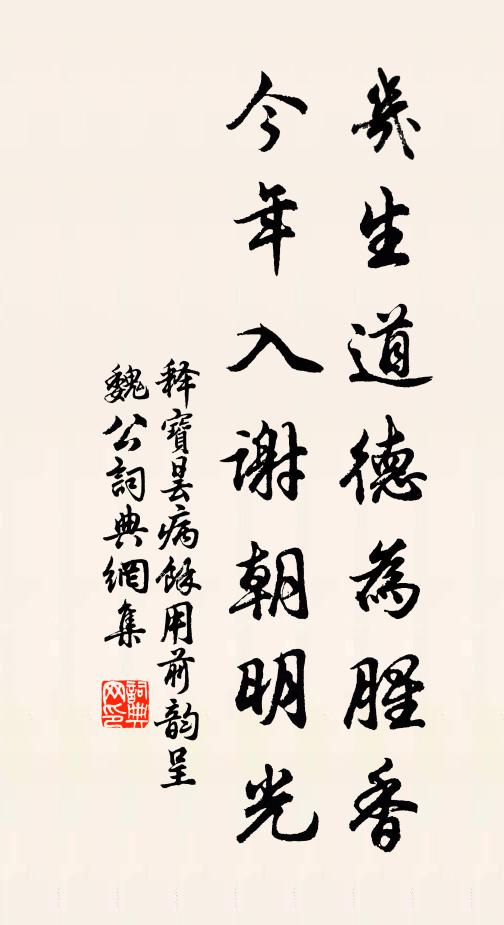 幾生道德為腥香
今年入謝朝明光
释寶曇病餘用前韵呈
魏公詞典網集
詞典网印